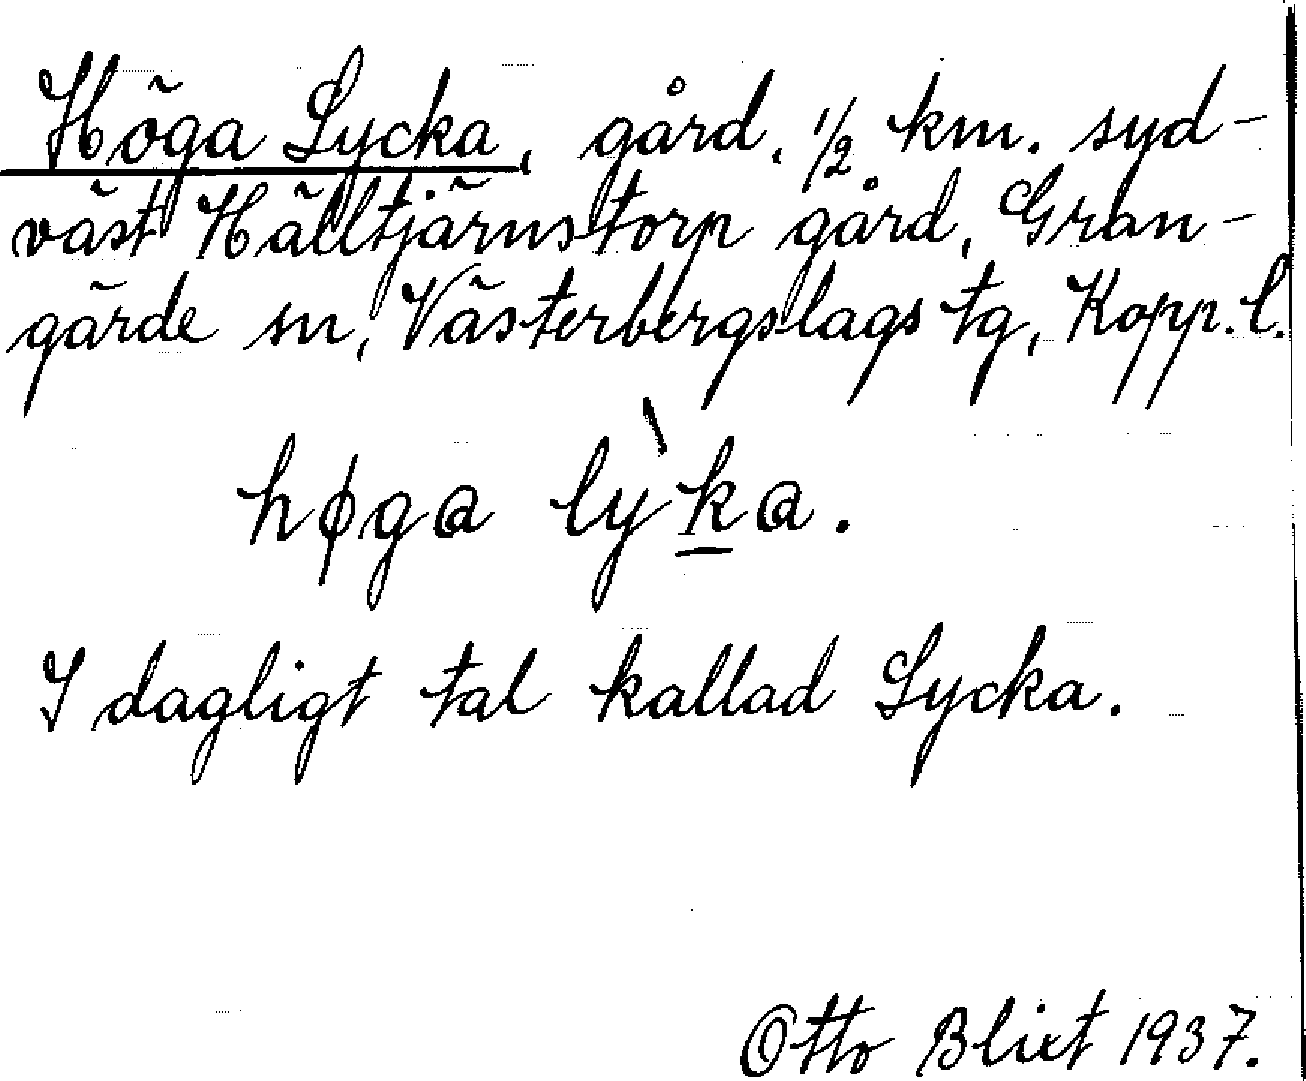 Höga Lycka, gård, 1/2 km. syd-
väst Hälltjärnstorp gård, Gran-
gärde sn, Västerbergslags tg, Kopp. l.
høga lỳka.
I dagligt tal kallad Lycka.
Otto Blixt 1937.